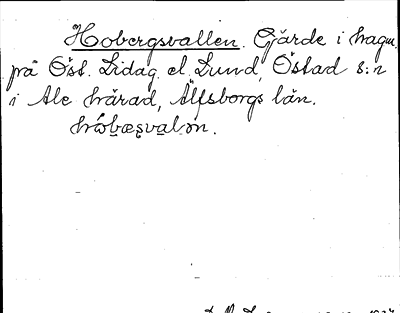 Hobergsvallen. Gjärde i hagen
på Öst. Lidag el. Lund, Östad s:n
i Ale härad, Älfsborgs län.